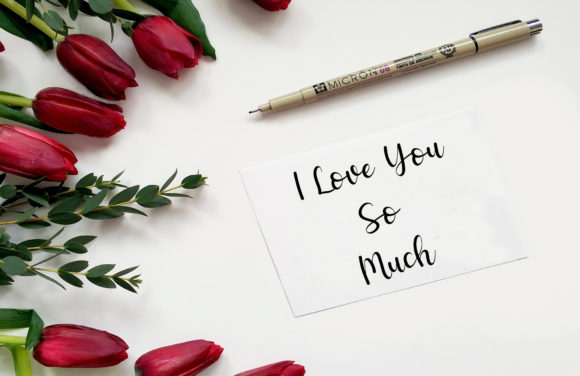 MICRON
I Love You
So
Much